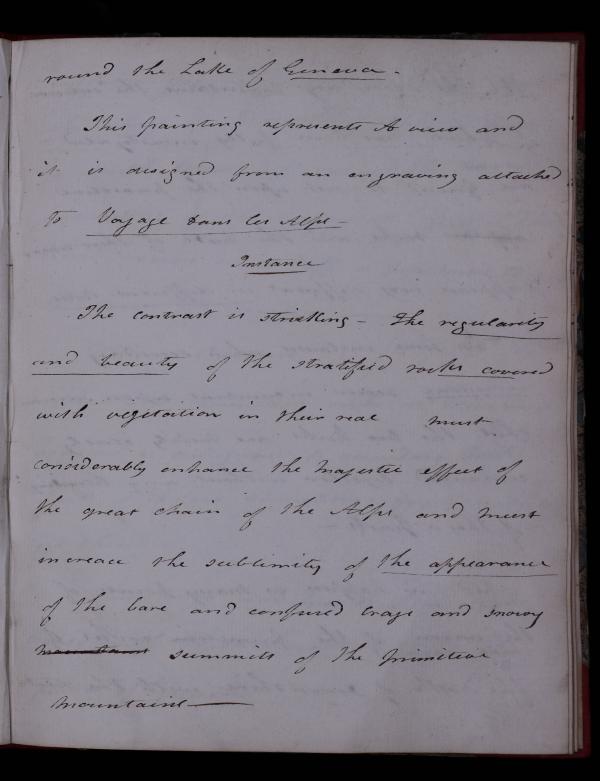 round the Lake of Geneva -
This painting represents A view and
it is designed from an engraving attached
to Voyage Dans les Alps -
Instance
The contrast is striking - the regularity
and beauty of the stratified rocks covered
with vegetation in their real must
considerably enhance the majestic effect of
the great chain of the Alps and must
increace the sublimity of the appearance
of the bare and confused Crags and snowy
mountains summits of the primitive
mountains —